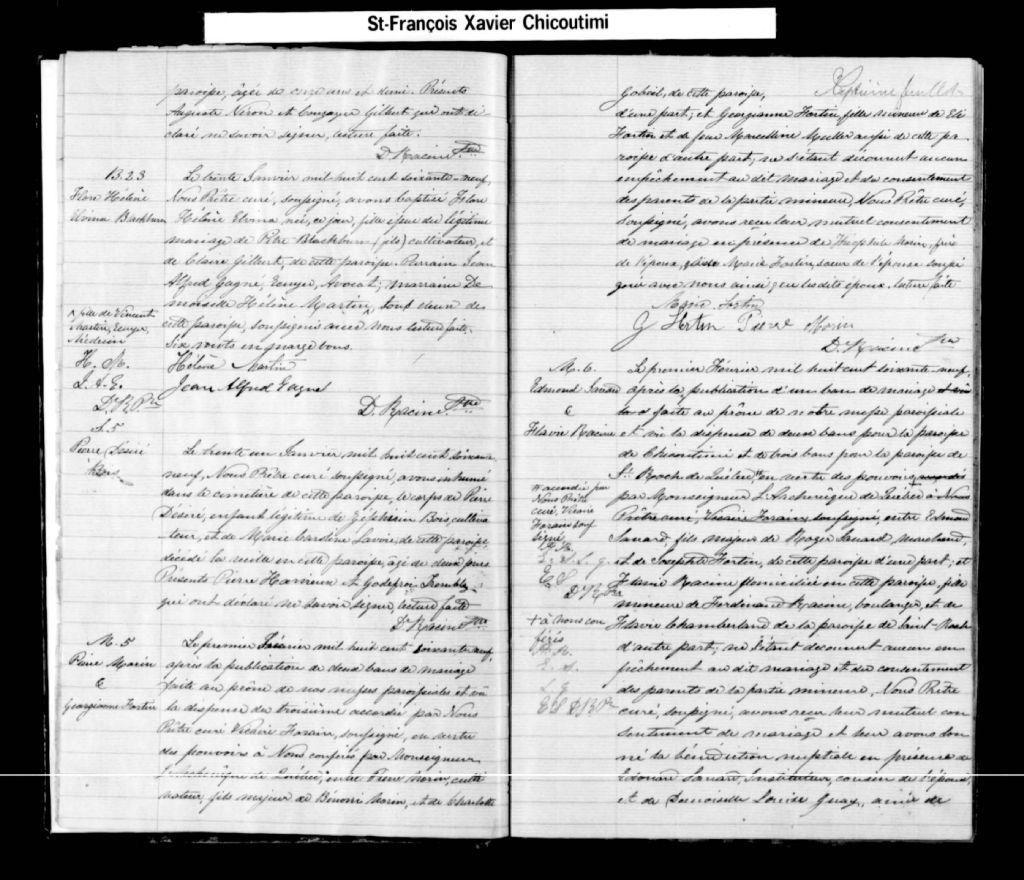 St-François Xavier Chicoutimi
paroisse, âgée de cinq ans et demi. Présents
Auguste Néron et Gonzague Gilbert qui ont dé
claré ne savoir signer, lecture faite.
D. Racine Ptre
B. 23
Flore Hélène
Elvina Blackburn
Le trente Janvier mil huit cent soixante-neuf,
Nous Prêtre curé, soussigné, avons baptisé Flore
Hélène Elvina née, ce jour, fille issue du légitime
mariage de Pitre Blackburn (fils) cultivateur, et
de Claire Gilbert, de cette paroisse. Parrain Jean
Alfred Gagné, Ecuyer, Avocat; marraine De
moiselle Hélène Martin, x tous deux de
cette paroisse, soussignés avec nous lecture faite.
Six mots en marge bons.
x fille de Vincent
Martin, Ecuyer,
Médecin
H. M.
J. A. G.
D. R. Ptre
Hélène Martin
Jean Alfred Gagné
D. Racine Ptre
S. 5
Pierre Désiré
Bois
Le trente un Janvier mil huit cent soixante
neuf, Nous Prêtre curé soussigné, avons inhumé
dans le cimetière de cette paroisse, le corps de Pierre
Désiré, enfant légitime de Zéphirin Bois, cultiva
teur, et de Marie Caroline Lavoie de cette paroisse,
décédé la veille en cette paroisse, âgé de deux jours.
Présents Pierre et Godefroi Tremblay
qui ont déclaré ne savoir signer, lecture faite
D. Racine Ptre
M. 5
Pierre Morin
&
Georgianne Fortin
Le premier Février mil huit cent soixante neuf,
après la publication de deux bans de mariage
faite au prône de nos messes paroissiales et vû
la dispense du troisième accordée par Nous
Prêtre curé Vicaire Forain, soussigné, en vertu
des pouvoirs à Nous conférés par Monseigneur
L'Archevêque de Québec, entre Pierre Morin, culti
vateur, fils majeur de Bénoni Morin, et de Charlotte
Septième feuillet
Gobeil, de cette paroisse,
d'une part; et Georgianne Fortin, fille mineure de Eli
Fortin et de feue Marcelline aussi de cette pa
roisse d'autre part; ne s'étant découvert aucun
empêchement au dit mariage et du consentement
des parents de la partie mineure, Nous Prêtre curé,
soussigné, avons reçu leur mutuel consentement
de mariage en présence de Morin, frère
de l'époux, Marie Fortin, sœur de l'épouse soussi
gnée avec nous ainsi que les dits époux. lecture faite
Marie Fortin
G Fortin Pierre Morin
D. Racine Ptre
M. 6
Edmond Savard
&
Flavie Racine
Le premier Février mil huit cent soixante-neuf,
après la publication d'un ban de mariage
faite au prône de notre messe paroissiale
et vû la dispense de deux bans pour la paroisse
de Chicoutimi et de trois bans pour la paroisse de
St. Roch de Québec, en vertu des pouvoirs
par Monseigneur L'Archevêque de Québec à Nous
Prêtre curé, Vicaire Forain, soussigné, entre Edmond
Savard, fils majeur de Roger Savard, marchand,
et de Josephte Fortin, de cette paroisse d'une part; et
Flavie Racine domiciliée en cette paroisse, fille
mineure de Ferdinand Racine, boulanger, et de
Flavie Chamberland de la paroisse de Saint-Roch
d'autre part; ne s'étant découvert aucun em
pêchement au dit mariage et du consentement
des parents de la partie mineure, Nous Prêtre
curé, soussigné, avons reçu leur mutuel con
sentement de mariage et leur avons don
né la bénédiction nuptiale en présence de
Edouard Savard, Instituteur, cousin de l'époux,
et de Demoiselle Louise Guay, amie de
accordée par
Nous Prêtre
curé, Vicaire
Forain sous
signé
E. S.
D. R. Ptre
+ à nous con
férés
E. S. D. R. Ptre